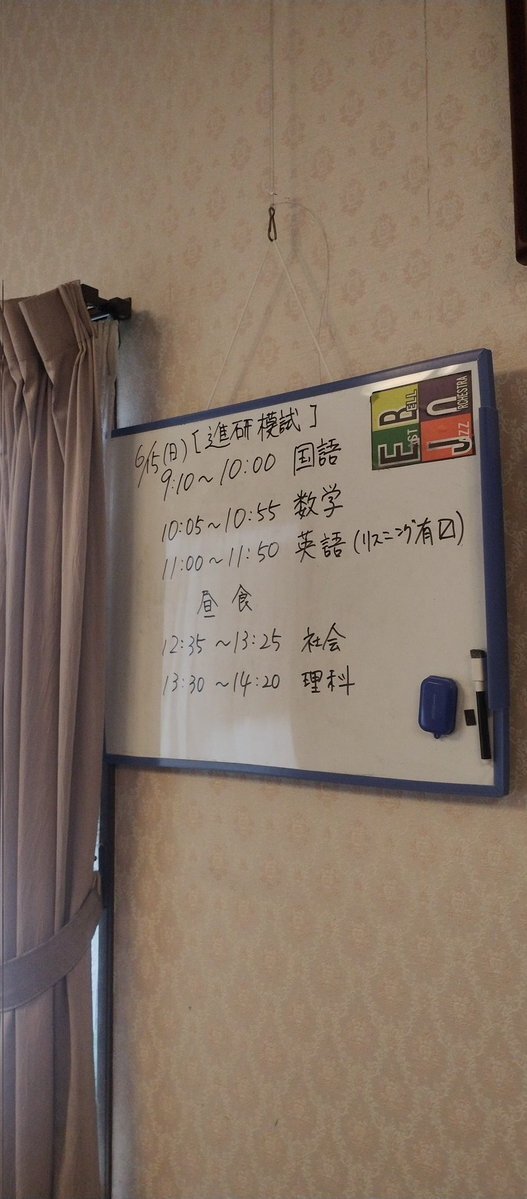 6/15(日)[進研模試]
9:10～10:00 国語
10:05～10:55 数学
11:00～11:50 英語(リスニング有☑)
昼食
12:35～13:25 社会
13:30～14:20 理科
EAST BELL
JAZZ ORCHESTRA